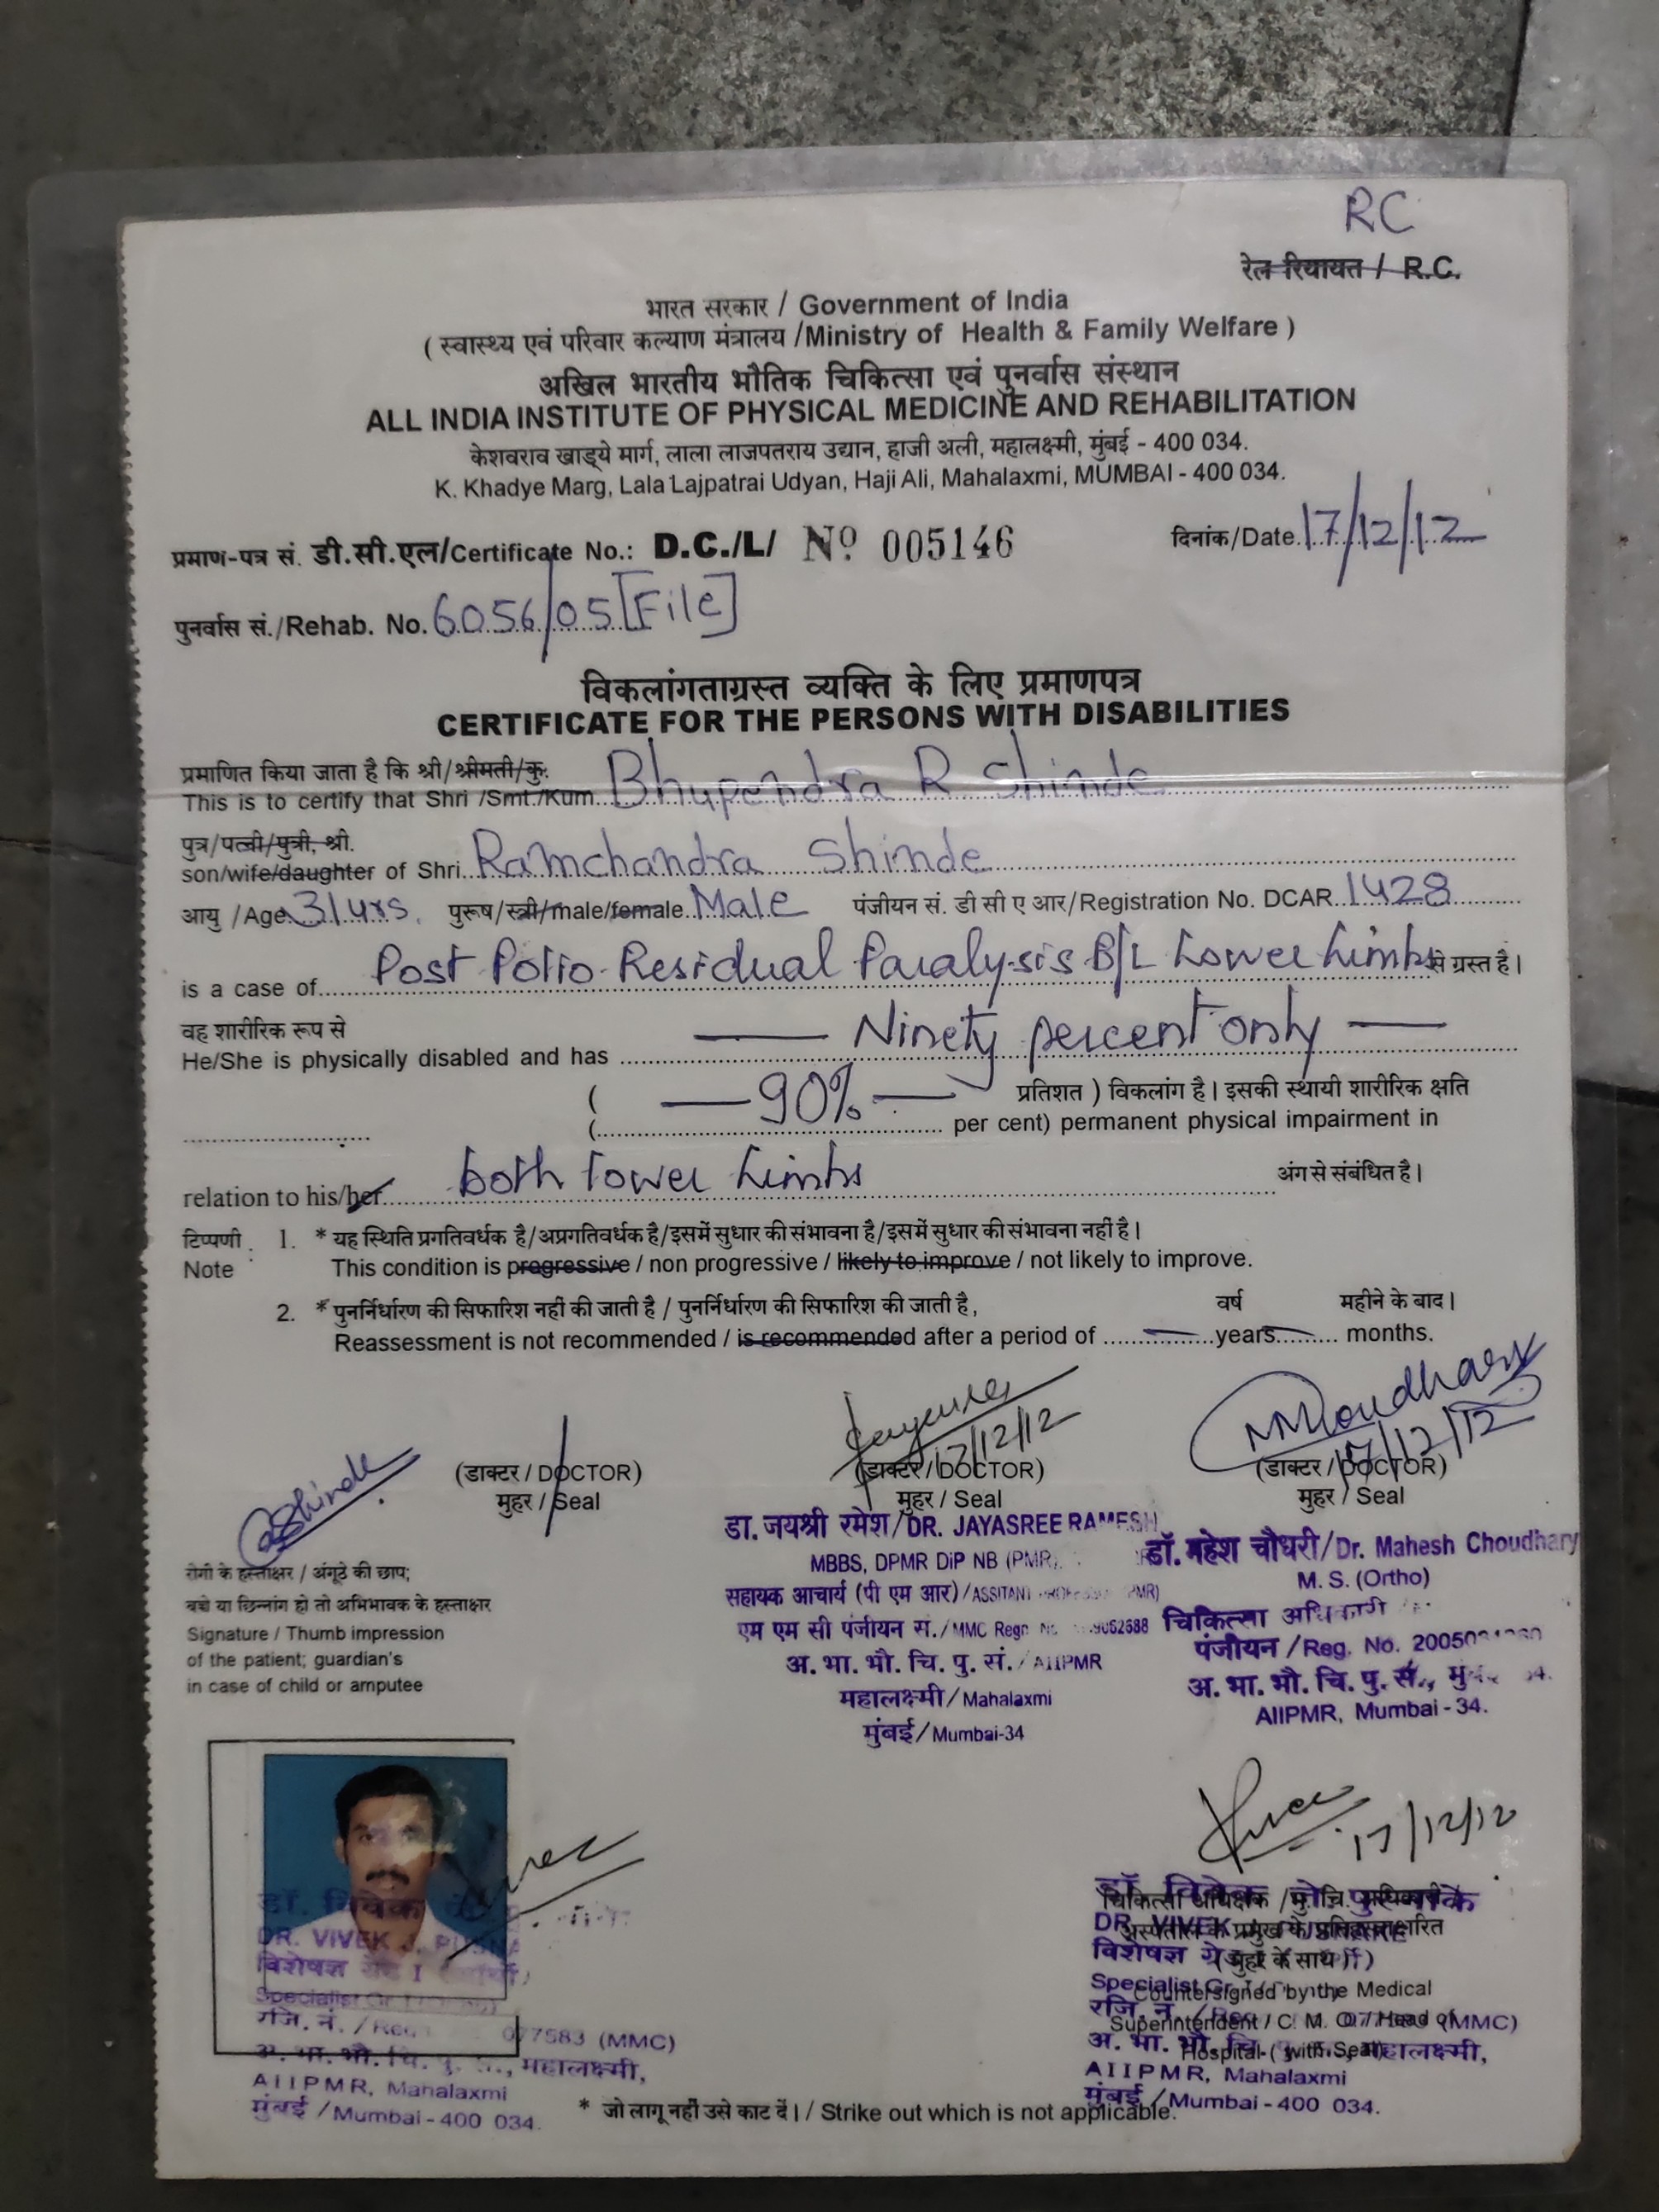 RC
रेल रियायत / R.C.
भारत सरकार / Government of India
( स्वास्थ्य एवं परिवार कल्याण मंत्रालय /Ministry of Health & Family Welfare )
अखिल भारतीय भौतिक चिकित्सा एवं पुनर्वास संस्थान
ALL INDIA INSTITUTE OF PHYSICAL MEDICINE AND REHABILITATION
केशवराव खाड्ये मार्ग, लाला लाजपतराय उद्यान, हाजी अली, महालक्ष्मी, मुंबई - 400 034.
K. Khadye Marg, Lala Lajpatrai Udyan, Haji Ali, Mahalaxmi, MUMBAI - 400 034.
प्रमाण-पत्र सं. डी.सी.एल/Certificate No.: D.C./L/ Nº 005146 दिनांक/Date. 17/12/12
पुनर्वास सं./Rehab. No. 6056/05 [File]
विकलांगताग्रस्त व्यक्ति के लिए प्रमाणपत्र
CERTIFICATE FOR THE PERSONS WITH DISABILITIES
प्रमाणित किया जाता है कि श्री/श्रीमती/कु.
This is to certify that Shri /Smt./Kum. Bhupendra R Shinde
पुत्र/पत्नी/पुत्री, श्री.
son/wife/daughter of Shri. Ramchandra Shinde
आयु /Age 31 yrs. पुरूष/स्त्री/male/female. Male पंजीयन सं. डी सी ए आर/Registration No. DCAR. 1428
is a case of Post Polio Residual Paralysis B/L Lower Limbs से ग्रस्त है।
वह शारीरिक रूप से
He/She is physically disabled and has — Ninety percent only —
( — 90% — प्रतिशत ) विकलांग है। इसकी स्थायी शारीरिक क्षति
(. per cent) permanent physical impairment in
relation to his/her. both lower limbs अंग से संबंधित है।
टिप्पणी 1. * यह स्थिति प्रगतिवर्धक है/अप्रगतिवर्धक है/इसमें सुधार की संभावना है/इसमें सुधार की संभावना नहीं है।
Note This condition is progressive / non progressive / likely to improve / not likely to improve.
2. * पुनर्निर्धारण की सिफारिश नहीं की जाती है / पुनर्निर्धारण की सिफारिश की जाती है, वर्ष महीने के बाद।
Reassessment is not recommended / is recommended after a period of — years — months.
17/12/12
MChoudhary 17/12/12
Shinde
(डाक्टर / DOCTOR) (डाक्टर / DOCTOR) (डाक्टर / DOCTOR)
मुहर / Seal मुहर / Seal मुहर / Seal
डा. जयश्री रमेश/DR. JAYASREE RAMESH
MBBS, DPMR DiP NB (PMR)
सहायक आचार्य (पी एम आर)/ASSITANT PMR)
एम एम सी पंजीयन सं./MMC Regn
अ. भा. भौ. चि. पु. सं. / AIIPMR
महालक्ष्मी / Mahalaxmi
मुंबई / Mumbai-34
डॉ. महेश चौधरी/Dr. Mahesh Choudhary
M. S. (Ortho)
चिकित्सा अधिकारी
पंजीयन / Reg. No.
अ. भा. भौ. चि. पु. सं.,
AIIPMR, Mumbai - 34.
रोगी के हस्ताक्षर / अंगूठे की छाप;
बच्चे या छिन्नांग हो तो अभिभावक के हस्ताक्षर
Signature / Thumb impression
of the patient; guardian's
in case of child or amputee
17/12/12
डॉ. विवेक
DR. VIVEK
विशेषज्ञ ग्रेड I
077583 (MMC)
अ. भा. भौ. चि. पु. महालक्ष्मी,
AIIPMR, Mahalaxmi
मुंबई / Mumbai - 400 034.
डॉ. विवेक
DR. VIVEK
(मुहर के साथ)
Countersigned by the Medical
Superintendent / C. M. O. / Head of
Hospital ( with Seal)
(MMC)
महालक्ष्मी,
AIIPMR, Mahalaxmi
मुंबई / Mumbai - 400 034.
* जो लागू नहीं उसे काट दें। / Strike out which is not applicable.